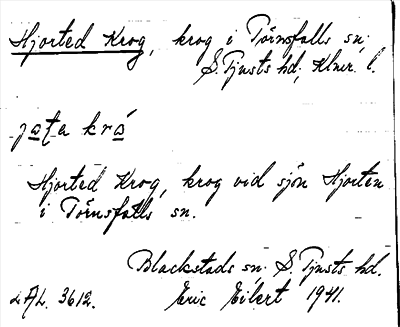 Hjorted Krog, krog i Törnsfalls sn;
S. Tjusts hd; Klmr. l.
jata krå
Hjorted Krog, krog vid sjön Hjorten
i Törnsfalls sn.
Blackstads sn. S. Tjusts hd.
LAL. 3612. Eric Eilert 1941.